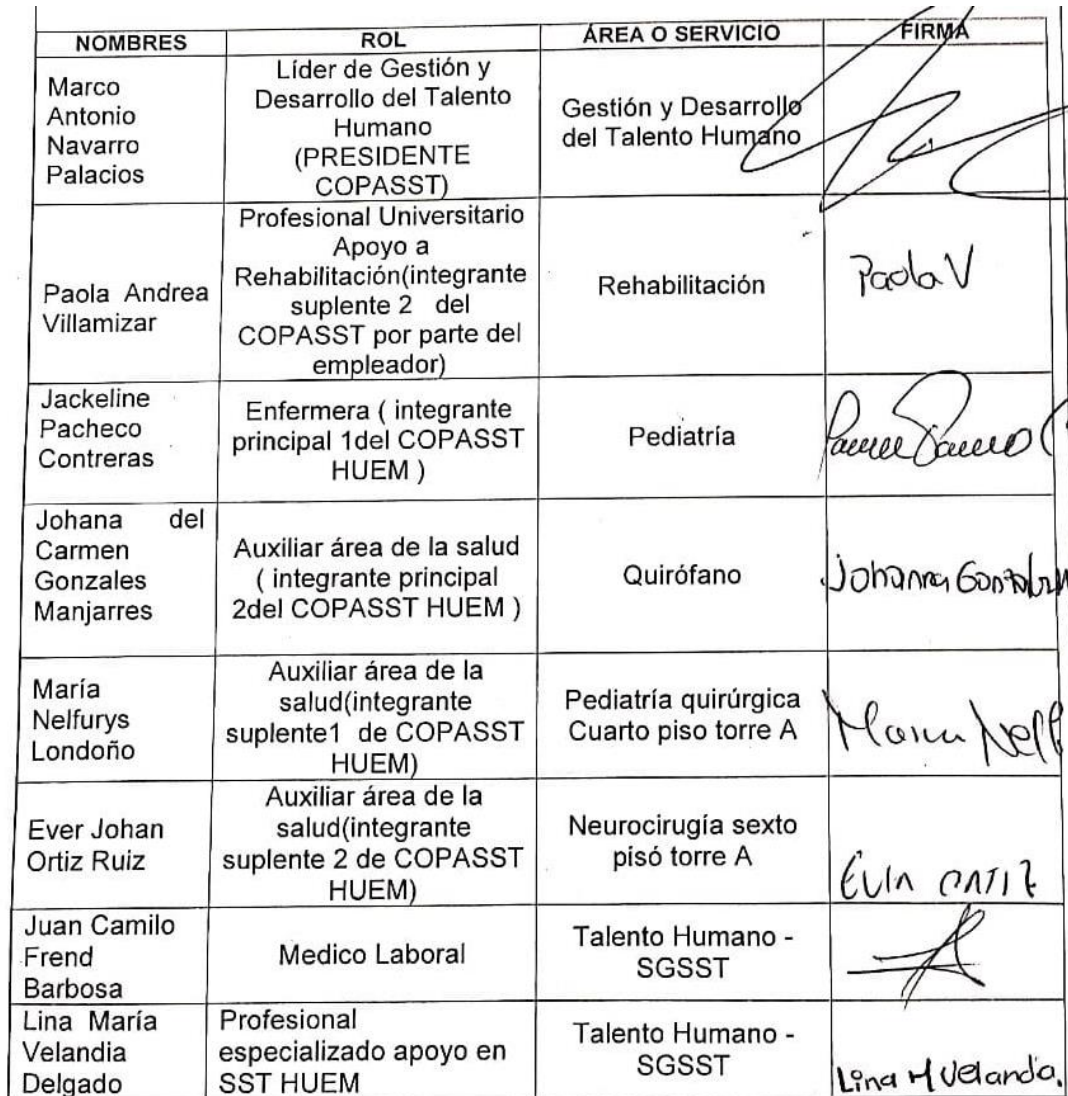 NOMBRES ROL ÁREA O SERVICIO FIRMA
Marco
Antonio
Navarro
Palacios
Líder de Gestión y
Desarrollo del Talento
Humano
(PRESIDENTE
COPASST)
Gestión y Desarrollo
del Talento Humano
Paola Andrea
Villamizar
Profesional Universitario
Apoyo a
Rehabilitación(integrante
suplente 2 del
COPASST por parte del
empleador)
Rehabilitación
Paola V
Jackeline
Pacheco
Contreras
Enfermera ( integrante
principal 1del COPASST
HUEM )
Pediatría
Johana del
Carmen
Gonzales
Manjarres
Auxiliar área de la salud
( integrante principal
2del COPASST HUEM )
Quirófano
Johanna
María
Nelfurys
Londoño
Auxiliar área de la
salud(integrante
suplente1 de COPASST
HUEM)
Pediatría quirúrgica
Cuarto piso torre A
Maria Nelf
Ever Johan
Ortiz Ruiz
Auxiliar área de la
salud(integrante
suplente 2 de COPASST
HUEM)
Neurocirugía sexto
pisó torre A
Juan Camilo
Frend
Barbosa
Medico Laboral
Talento Humano -
SGSST
Lina María
Velandia
Delgado
Profesional
especializado apoyo en
SST HUEM
Talento Humano -
SGSST
Lina M Velandia.